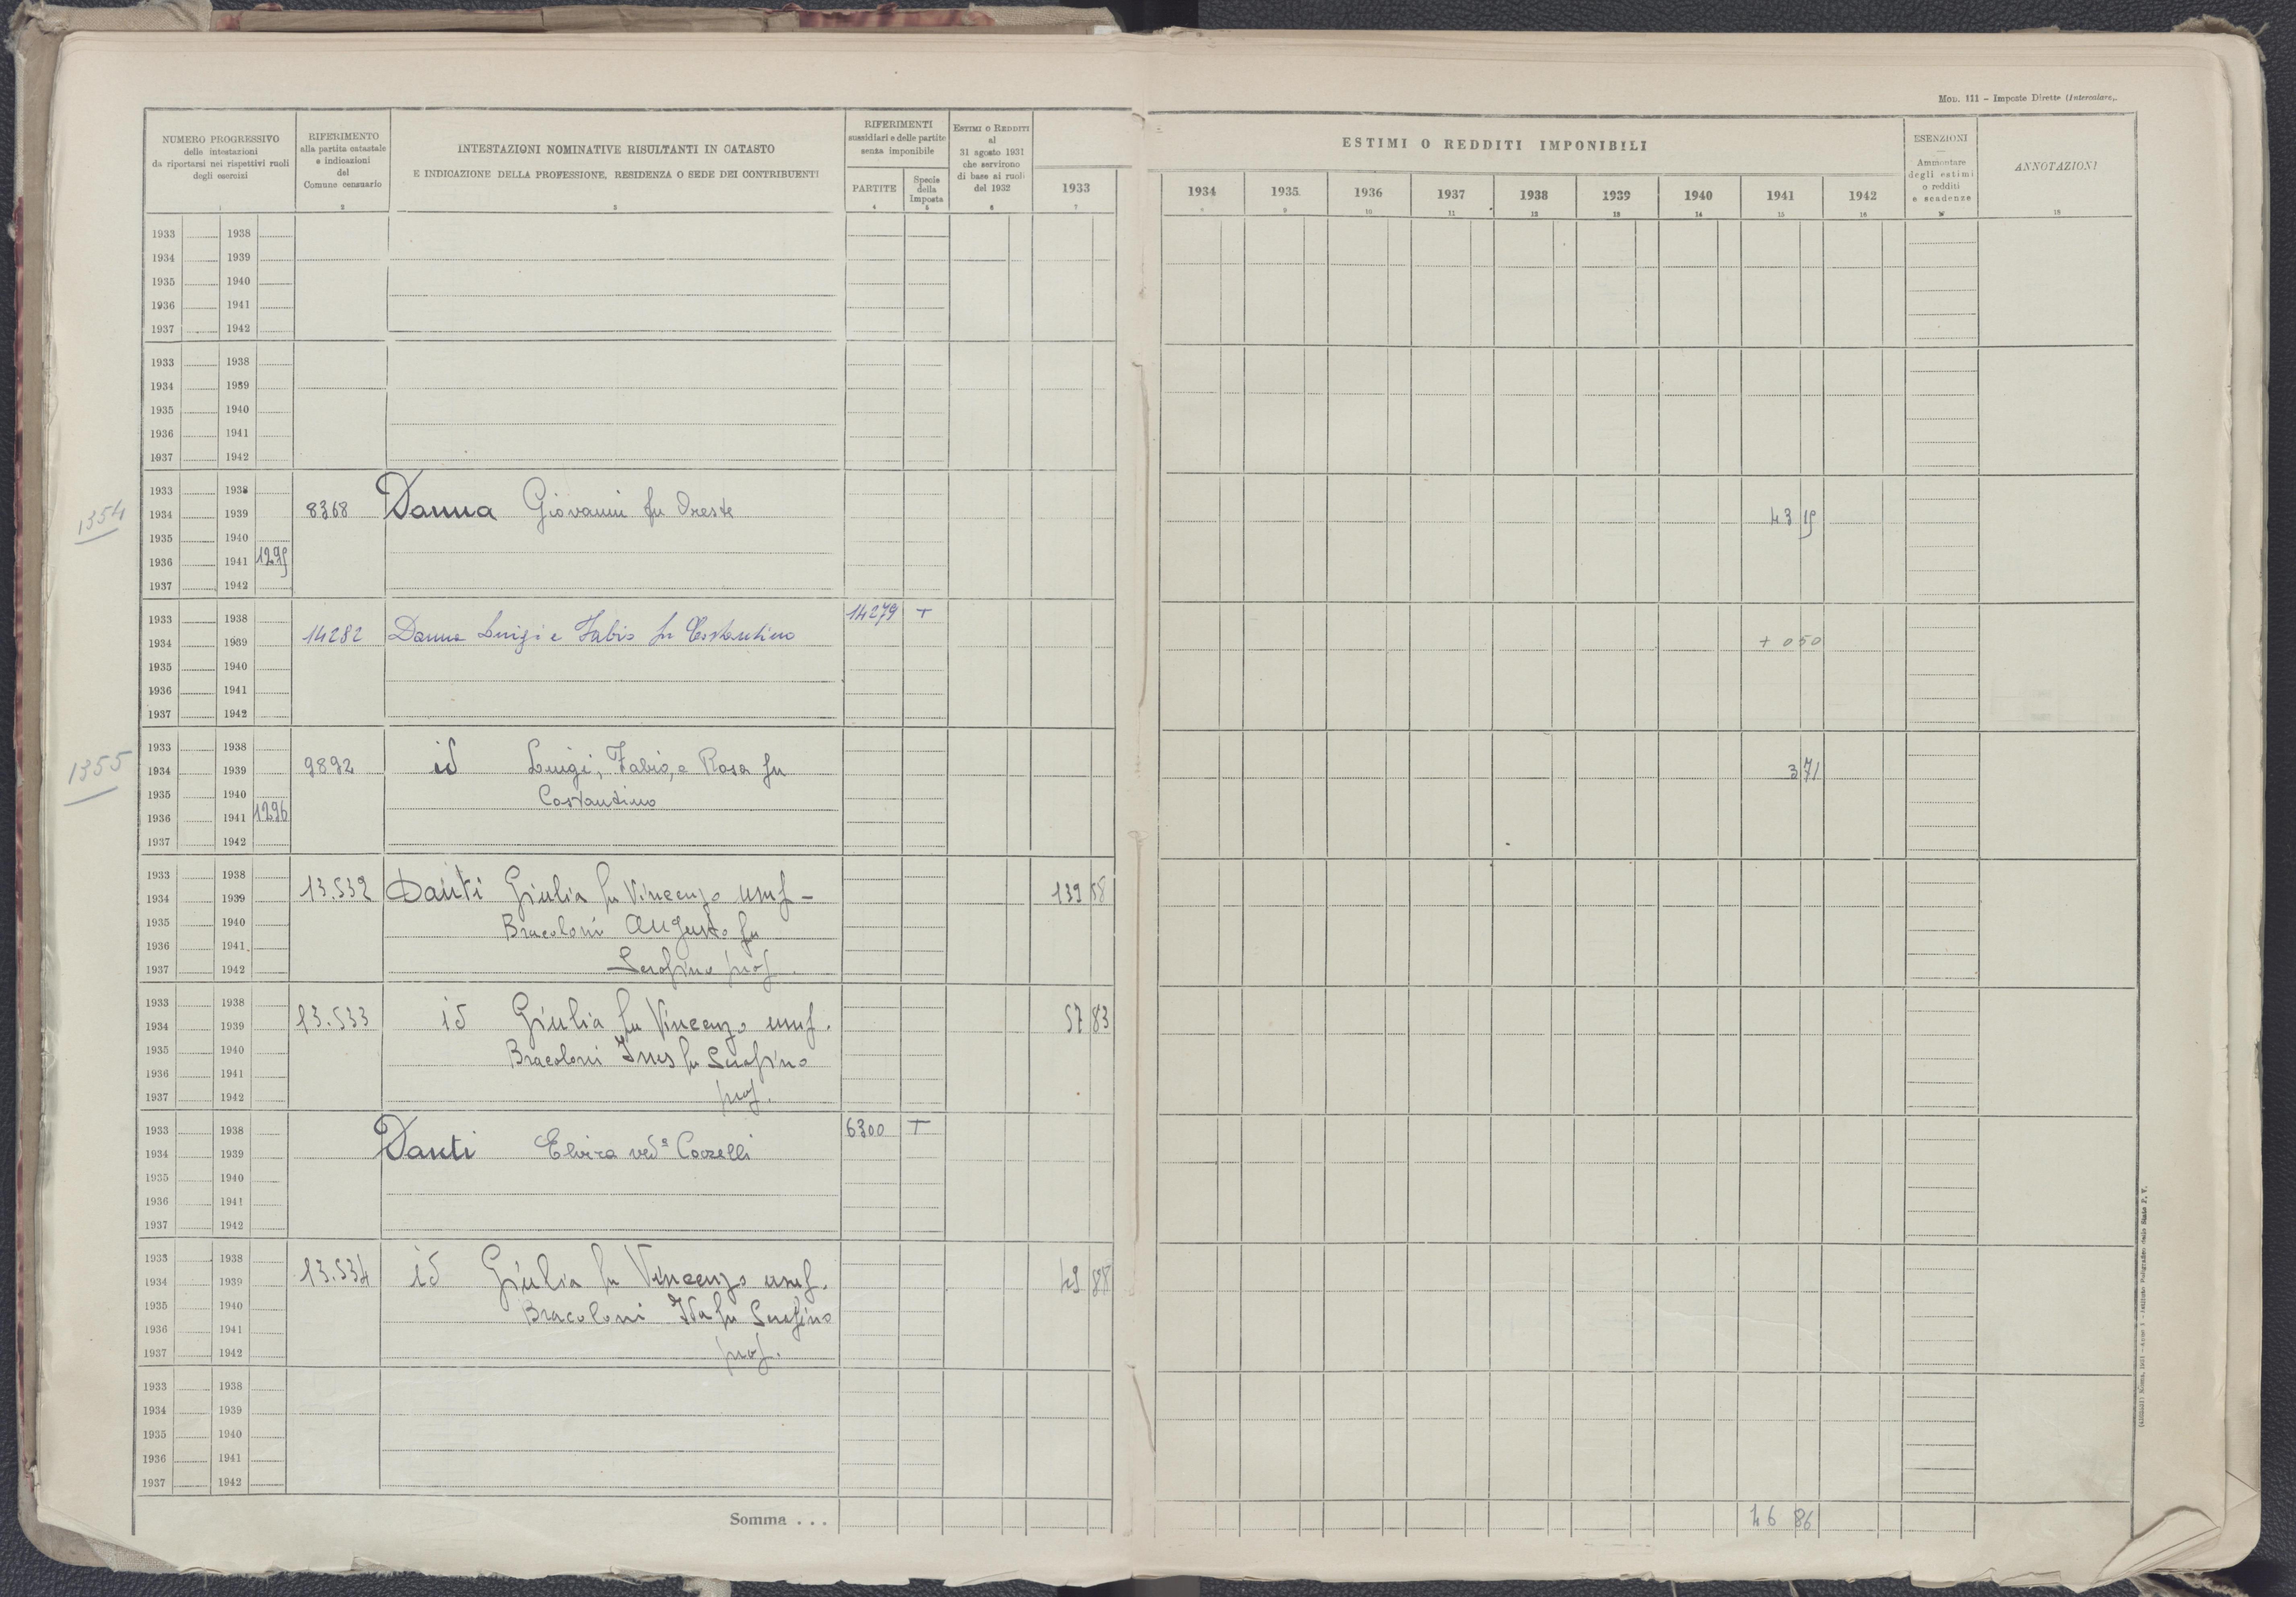 Mod. 111 - Imposte Dirette (Intercalare).
NUMERO PROGRESSIVO
delle intestazioni
da riportarsi nei rispettivi ruoli
degli esercizi
1
RIFERIMENTO
alla partita catastale
e indicazioni
del
Comune censuario
2
INTESTAZIONI NOMINATIVE RISULTANTI IN CATASTO
E INDICAZIONE DELLA PROFESSIONE, RESIDENZA O SEDE DEI CONTRIBUENTI
3
RIFERIMENTI
sussidiari e delle partite
senza imponibile
PARTITE
4
Specie
della
Imposta
5
ESTIMI O REDDITI
al
31 agosto 1931
che servirono
di base ai ruoli
del 1932
6
ESTIMI O REDDITI IMPONIBILI
1933 1934 1935 1936 1937 1938 1939 1940 1941 1942
7 8 9 10 11 12 13 14 15 16
ESENZIONI
Ammontare
degli estimi
o redditi
e scadenze
ANNOTAZIONI
18
1933 1938
1934 1939
1935 1940
1936 1941
1937 1942
1933 1938
1934 1939
1935 1940
1936 1941
1937 1942
1933 1938
1354 1934 1939 8368 Danna Giovanni fu Oreste 43 15
1935 1940
1936 1941 1295
1937 1942
1933 1938 14279 T
1934 1939 14282 Danna Luigi e Fabio fu Costantino + 0 50
1935 1940
1936 1941
1937 1942
1933 1938
1355 1934 1939 9892 id Luigi, Fabio, e Rosa fu 3 71
1935 1940 Costantino
1936 1941 1296
1937 1942
1933 1938
1934 1939 13.532 Danti Giulia fu Vincenzo usuf - 139 58
1935 1940 Bracoloni Augusto fu
1936 1941
1937 1942 Serafino prof.
1933 1938
1934 1939 13.533 id Giulia fu Vincenzo usuf. 57 83
1935 1940 Bracoloni Ines fu Serafino
1936 1941
1937 1942 prof.
1933 1938 6300 T
1934 1939 Danti Elvira ved.a Cozzelli
1935 1940
1936 1941
1937 1942
1933 1938
1934 1939 13.534 id Giulia fu Vincenzo usuf. 49 88
1935 1940 Bracoloni Ida fu Serafino
1936 1941
1937 1942 prof.
1933 1938
1934 1939
1935 1940
1936 1941
1937 1942
Somma . . . 46 86